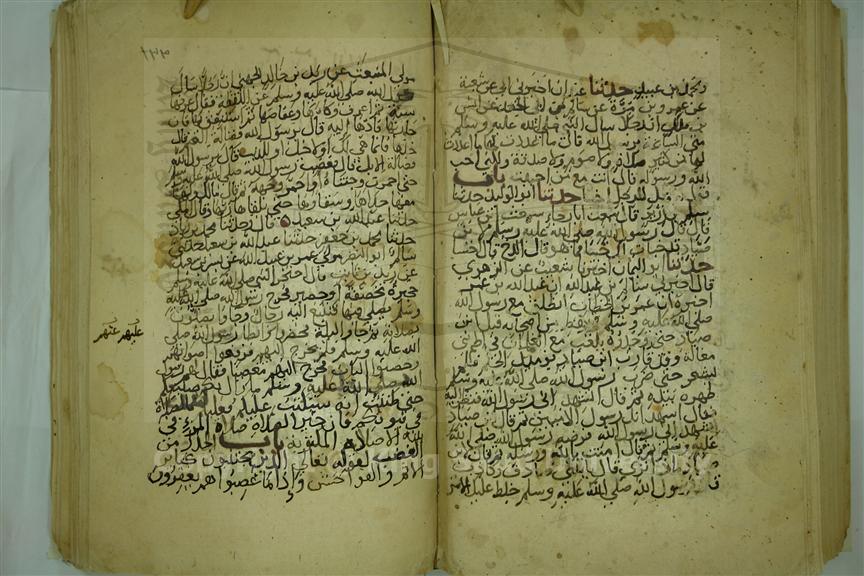 رجل بن عبيد حدثنا عبدان اخبرني ابي عن شعبة
عن عمرو بن مرة عن سالم بن ابي الجعد عن انس
بن مالك ان رجلا سال النبي صلى الله عليه وسلم
متى الساعة يا رسول الله قال ما اعددت لها قال ما اعددت
لها من كثير صلاة ولا صوم ولا صدقة ولكني احب
الله ورسوله قال انت مع من احببت باب
قول الرجل للرجل اخسا حدثنا ابو الوليد حدثنا
سلم بن زرير قال سمعت ابا رجاء سمعت ابن عباس
قال قال رسول الله صلى الله عليه وسلم لابن
صياد قد خبات لك خبيا فما هو قال الدخ قال اخسا
حدثنا ابو اليمان اخبرنا شعيب عن الزهري
قال اخبرني سالم بن عبد الله ان عبد الله بن عمر
اخبره ان عمر بن الخطاب انطلق مع رسول الله
صلى الله عليه وسلم في رهط من اصحابه قبل ابن
صياد حتى وجده يلعب مع الغلمان في اطم بني
مغالة وقد قارب ابن صياد يوميذ الحلم فلم
يشعر حتى ضرب رسول الله صلى الله عليه وسلم
ظهره بيده ثم قال اتشهد اني رسول الله فنظر اليه
فقال اشهد انك رسول الاميين ثم قال ابن صياد
اتشهد اني رسول الله فرضه رسول الله صلى الله
عليه وسلم ثم قال امنت بالله ورسله ثم قال لابن
صياد ماذا ترى قال ياتيني صادق وكاذب
قال رسول الله صلى الله عليه وسلم خلط عليك الامر
مولى المنبعث عن زيد بن خالد الجهني ان رجلا سال
رسول الله صلى الله عليه وسلم عن اللقطة فقال عرفها
سنة ثم اعرف وكاءها وعفاصها ثم استنفق بها فان
جاء ربها فادها اليه قال يا رسول الله فضالة الغنم قال
خذها فانما هي لك او لاخيك او للذيب قال يا رسول الله
فضالة الابل قال فغضب رسول الله صلى الله عليه وسلم
حتى احمرت وجنتاه او احمر وجهه ثم قال مالك ولها
معها حذاؤها وسقاؤها حتى يلقاها ربها وقال المكي
حدثنا عبد الله بن سعيد ه قال وحدثنا محمد بن زياد
حدثنا محمد بن جعفر حدثنا عبد الله بن سعيد حدثني
سالم ابو النضر مولى عمر بن عبيد الله عن بسر بن سعيد
عن زيد بن ثابت قال احتجر النبي صلى الله عليه وسلم
حجيرة مخصفة او حصيرا فخرج رسول الله صلى الله عليه
وسلم يصلي فيها فتتبع اليه رجال وجاؤا يصلون
بصلاته ثم جاؤا ليلة فحضروا وابطا رسول الله صلى
الله عليه وسلم فلم يخرج اليهم فرفعوا اصواتهم
وحصبوا الباب فخرج اليهم مغضبا فقال لهم رسول
الله صلى الله عليه وسلم ما زال بكم صنيعكم
حتى ظننت انه سيكتب عليكم فعليكم بالصلاة
في بيوتكم فان خير الصلاة صلاة المرء في
بيته الا صلاة المكتوبه باب الحذر من
الغضب لقوله تعالى الذين يجتنبون كبائر
الاثم والفواحش وإذا ما غضبوا هم يغفرون
عليهم عنهم